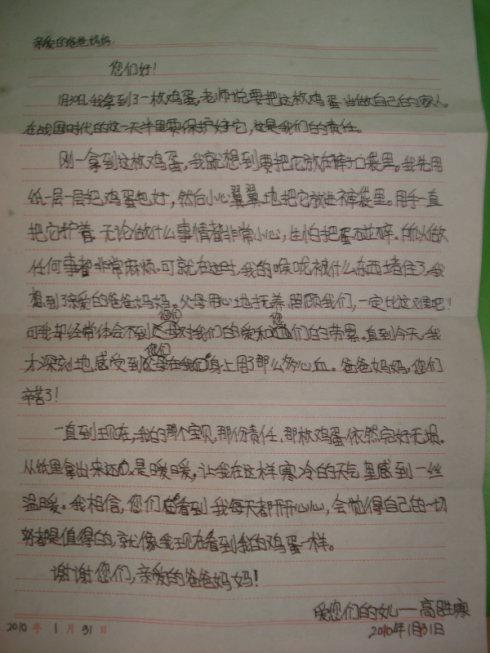 亲爱的爸爸妈妈:
您们好!
我拿到了一枚鸡蛋,老师说要把这枚鸡蛋当做自己的家人,
在的这一天半里要保护好它,这是我们的责任。
刚一拿到这枚鸡蛋,我就想到要把它放在裤子口袋里。我先用
纸一层一层把鸡蛋包好,然后小心翼翼地把它放进裤袋里。用手一直
把它护着,无论做什么事情都非常小心,生怕把蛋碰碎。所以做
任何事都非常麻烦。可就在这时,我的喉咙被什么东西堵住了,我
想到了亲爱的爸爸妈妈。父母用心地抚养、照顾我们,一定比这难吧!
可我却经常体会不到您们对我们的爱和您们的劳累。直到今天,我
才深刻地感受到您们在我身上用了那么多心血。爸爸妈妈,您们
辛苦了!
一直到现在,我的那个宝贝,那份责任,那枚鸡蛋依然完好无损。
从纸里拿出来还是暖暖,让我在这样寒冷的天气里感到一丝
温暖。我相信,您们在看到我每天都开开心心,会觉得自己的一切
努力都是值得的,就像我现在看到我的鸡蛋一样。
谢谢您们,亲爱的爸爸妈妈!
爱您们的女儿——高胜
2010年1月31日
2010年1月31日